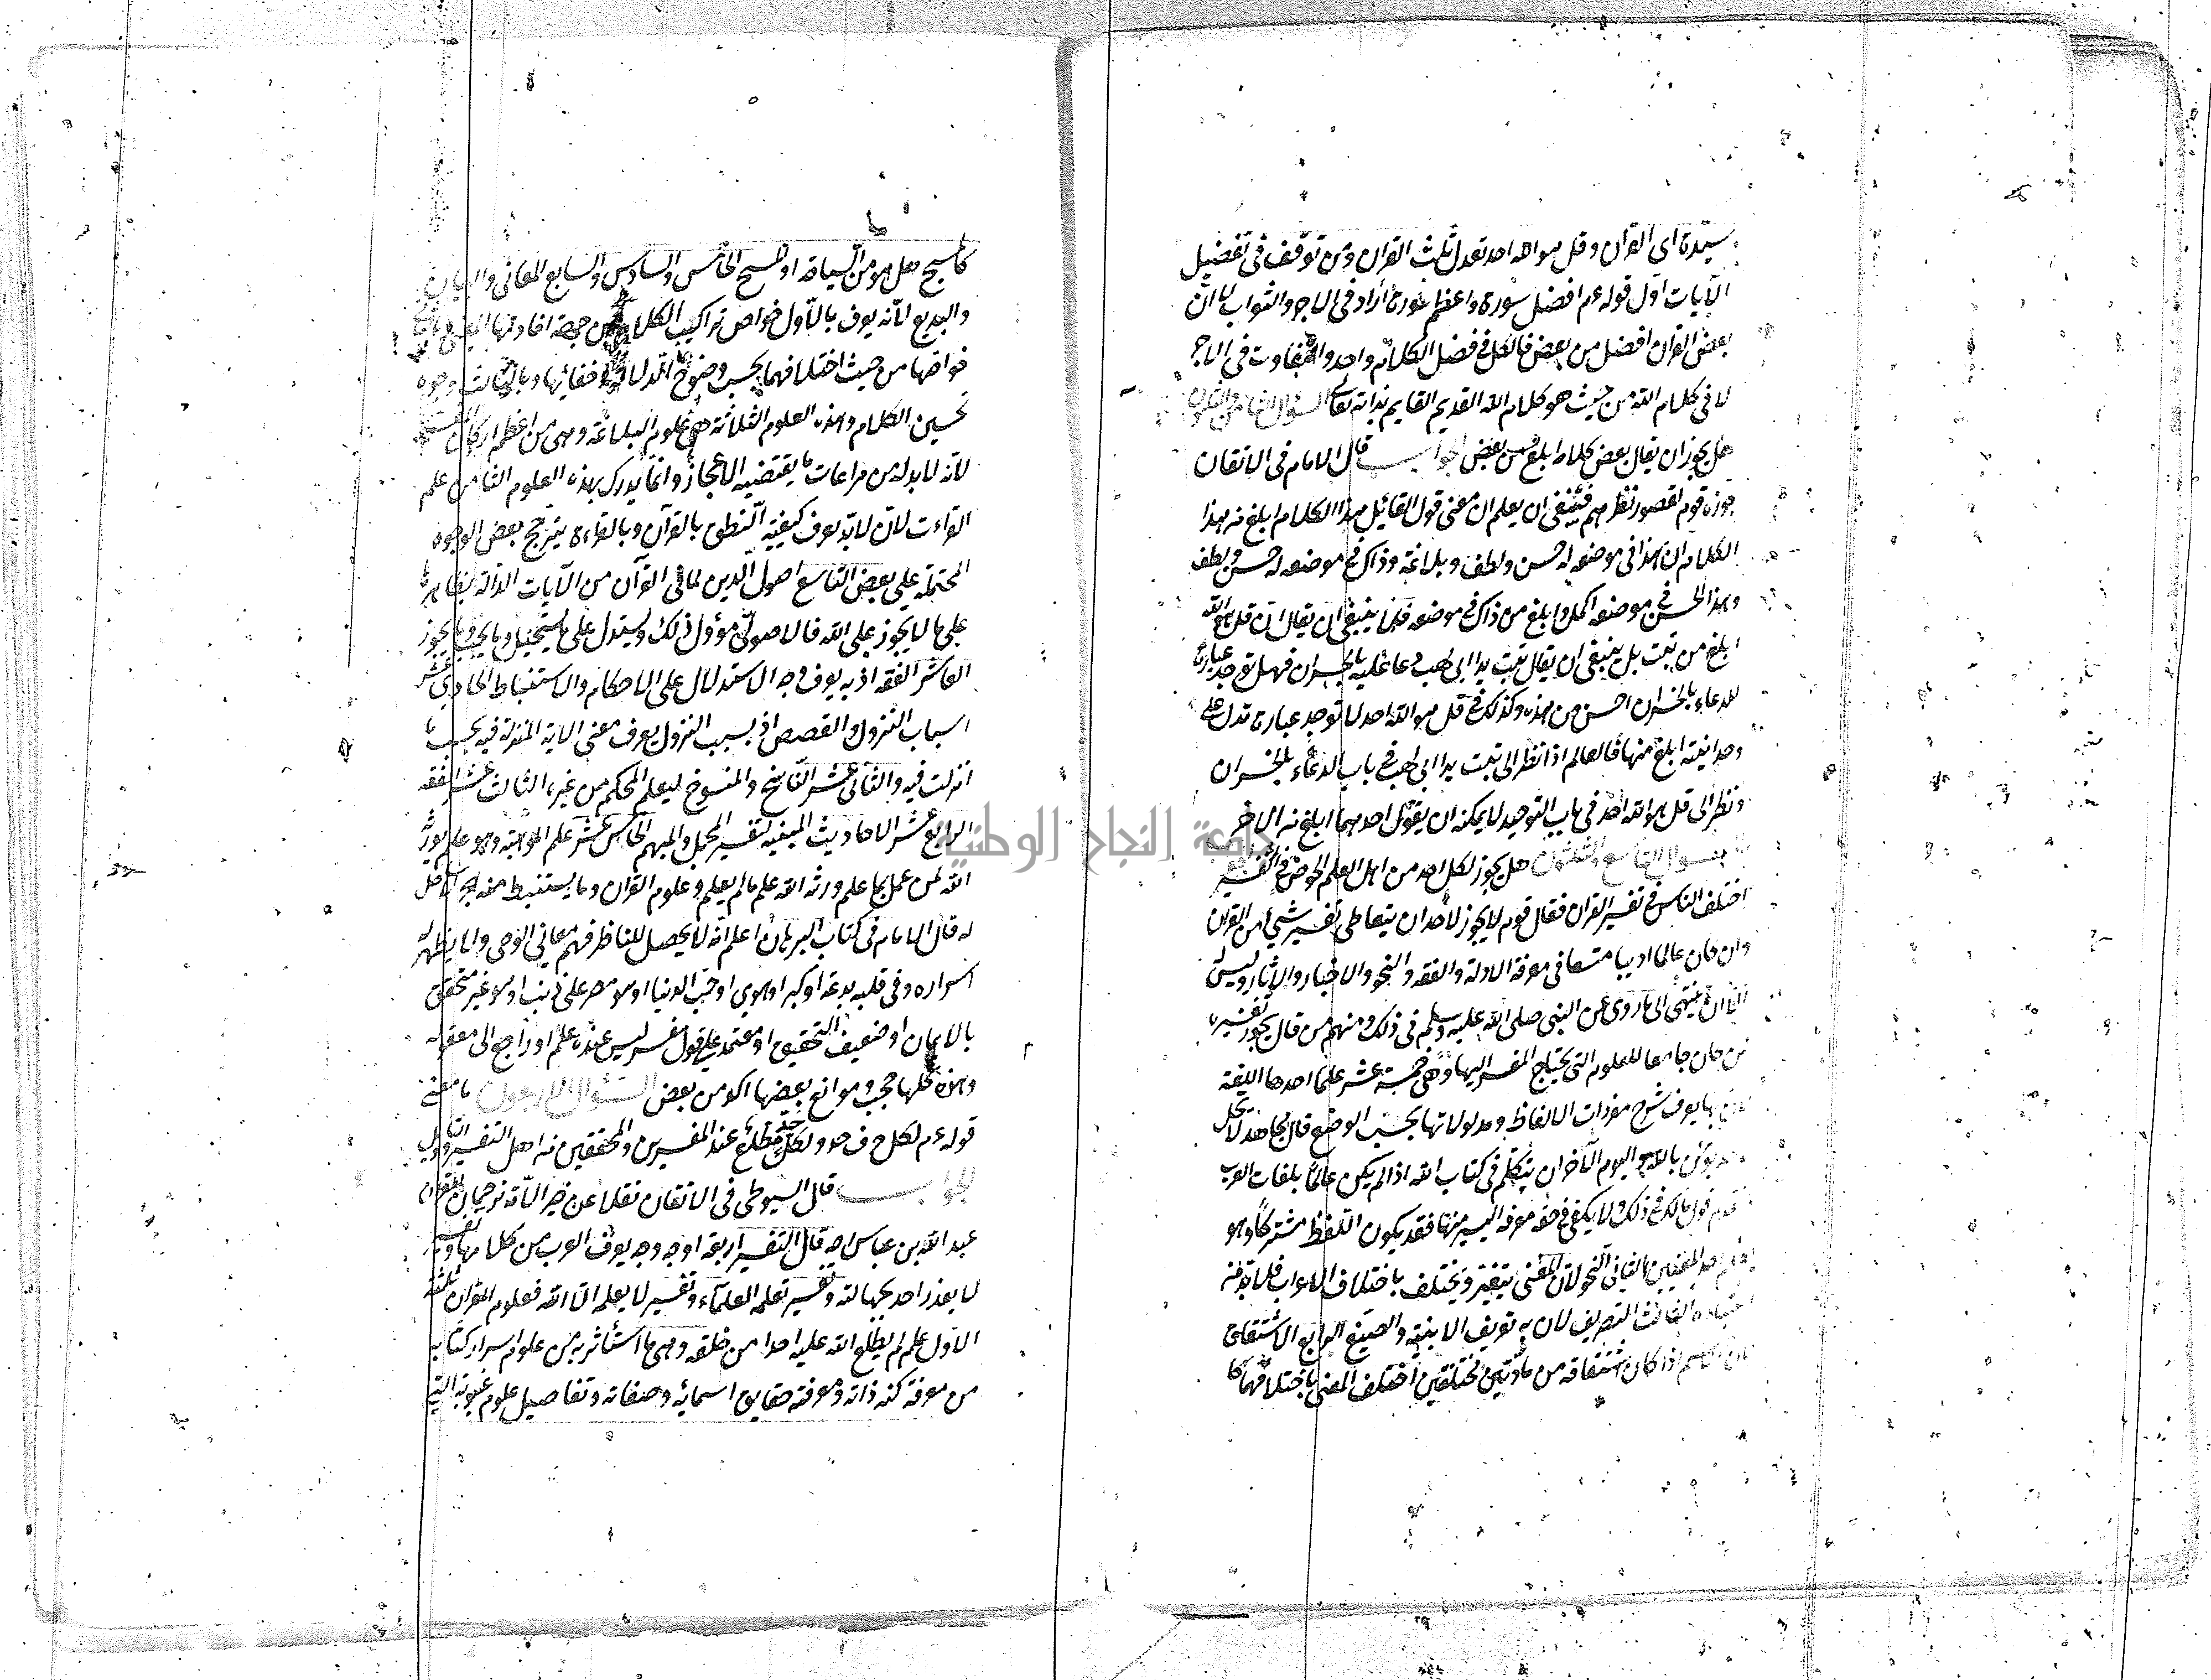 سيّدة اى القرآن وقل هو الله احد تعدل ثلث القران ومن توقّف فى تفضيل
الآيات اوّل قوله عم افضل سورة واعظم سورة أراد فى الاجر والثواب لا انّ
بعض القران افضل من بعض فالكل فى فضل الكلام واحد والتفاوت فى الاجر
لا فى كلام الله من حيث هو كلام الله القديم القايم بذاته تعالى السؤال الثامن والثلثون
هل يجوز ان يقال بعض كلامه ابلغ من بعض الجواب قال الامام فى الاتقان
جوزه قوم لقصور نظرهم فينبغى ان يعلم ان معنى قول القائيل هذا الكلام ابلغ منه هذا
الكلام ان هذا فى موضعه له حسن ولطف وبلاغة وذاك فى موضعه له حسن ولطف
وهذا الحسن فى موضعه اكمل وابلغ من ذاك فى موضعه فلا ينبغى ان يقال ان قل هو الله
ابلغ من تبت بل ينبغى ان يقال تبت يدا ابى لهب دعا عليه بالخسران فهل توجد عبارة
للدعاء بالخسران احسن من هذه وكذلك فى قل هو الله احد لا توجد عبارة تدل على
وحدانيته ابلغ منها فالعالم اذا نظر الى تبت يدا ابى لهب فى باب الدعاء بالخسران
ونظر الى قل هو الله احد فى باب التوحيد لا يمكنه ان يقول احدهما ابلغ منه الاخر
السؤال التاسع والثلثون هل يجوز لكل احد من اهل العلم الخوض فى التفسير
اختلف الناس فى تفسير القران فقال قوم لا يجوز لأحد ان يتعاطى تفسير شيئ من القران
وان كان عالما اديبا متسعا فى معرفة الادلة والفقه والنحو والاخبار والاثار وليس
الا ان ينتهى الى ما روى عن النبى صلى الله عليه وسلم فى ذلك ومنهم من قال يجوز تفسيره
لمن كان جامعا للعلوم التى يحتاج المفسر اليها وهى خمسة عشر علما احدها اللغة
بها يعرف شرح مفردات الالفاظ ومدلولاتها بحسب الوضع قال مجاهد لا يحل
يؤمن بالله واليوم الآخر ان يتكلّم فى كتاب الله اذا لم يكن عالمًا بلغات العرب
قول مالك فى ذلك ولا يكفى فى حقه معرفة اليسير منها فقد يكون اللّفظ مشتركًا وهو
احد المعنيين الثانى النحو لان المعنى يتغير ويختلف باختلاف الاعراب فلا بد منه
الثالث التصريف لان به تعريف الابنية والصيغ الرابع الاشتقاق
اذا كان اشتقاقه من مادّتين مختلفتين اختلف المعنى باختلافهما كا
كالمسيح هل هو من السياحة او المسح الخامس والسادس والسابع المعانى والبيان
والبديع لانّه يعرف بالأول خواص تراكيب الكلام من جهة افادتها المعنى وبالثانى
خواصها من حيث اختلافهما بحسب وضوح الدلالة وخفائها وبالثالث وجوه
تحسين الكلام وهذه العلوم الثلاثة هى علوم البلاغة وهى من اعظم اركان المفسر
لأنه لا بد له من مراعات ما يقتضيه الاعجاز وانما يدرك بهذه العلوم الثامن علم
القراءت لانّ لا بدّ يعرف كيفية النطق بالقرآن وبالقراءة يترجح بعض الوجوه
المحتملة على بعض التاسع اصول الدين لما فى القرآن من الآيات الدالّة بظاهرها
على ما لا يجوز على الله فالاصولى مؤول ذلك ويستدل على ما يستحيل وما يجب وما يجوز
العاشر الفقه اذ به يعرف وجه الاستدلال على الاحكام والاستنباط الحادى عشر
اسباب النزول والقصص اذ بسبب النزول يعرف معنى الاية المنزلة فيه بحسب ما
انزلت فيه والثانى عشر النّاسخ والمنسوخ ليعلم المحكم من غيره الثالث عشر الفقه
الرابع عشر الاحاديث المبينة لتفسير المجمل والمبهم الخامس عشر علم الموهبة وهو علم يورثه
الله لمن عمل بما علم ورثه الله علم ما لم يعلم وعلوم القران وما يستنبط منه بحر لا ساحل
له قال الامام فى كتاب البرهان اعلم انّه لا يحصل للناظر فهم معانى الوحى ولا يظهر له
اسراره وفى قلبه بدعة او كبر او هوى او حب الدنيا او هو مصر على ذنب او هو غير متحقق
بالايمان او ضعيف التحقيق او معتمد على قول مفسر ليس عنده علم او راجع الى معقوله
وهذه كلها حجب وموانع بعضها اكد من بعض السؤال الاربعون ما معنى
قوله عم لكل حرف حد ولكل حد مطلع عند المفسرين والمحققين منه اهل التفسير والتأويل
الجواب قال السيوطى فى الاتقان نقلا عن خير الأمّة ترجمان القران
عبد الله بن عباس انه قال التفسير اربعة اوجه وجه يعرف العرب من كلامها وتفسير
لا يعذر احد بجهالته وتفسير تعلمه العلمآء وتفسير لا يعلمه الا الله فعلوم القران ثلثة
الاول علم لم يطلع الله عليه احدا من خلقه وهى ما استأثر به من علوم اسرار كتابه
من معرفة كنه ذاته ومعرفة حقايق اسمائه وصفاته وتفاصيل علوم غيوبه التى
جامعة النجاح الوطنية